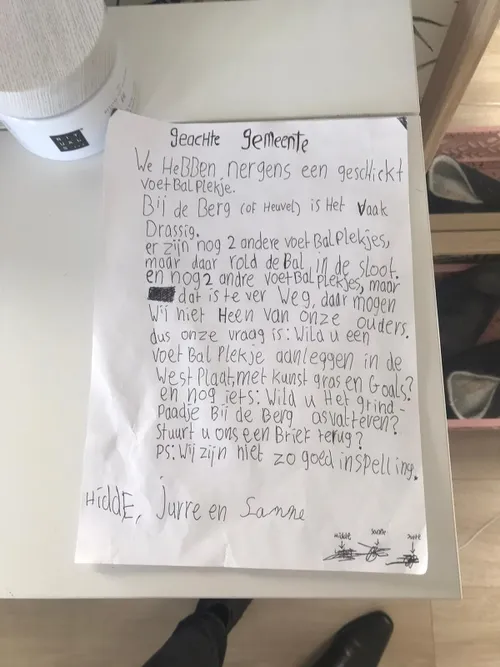 RITUALS
geachte gemeente
We HeBBen nergens een geschickt
voetBal Plekje.
Bij de Berg (of Heuvel) is Het vaak
Drassig.
er zijn nog 2 andere voetBalPlekjes,
maar daar rold de Bal in de sloot.
en nog 2 andre voetBalplekjes, maar
dat is te ver Weg, daar mogen
Wij niet Heen van onze ouders.
dus onze vraag is: Wild u een
voetBal Plekje aanleggen in de
West Plaat, met kunst gras en Goals?
en nog iets: Wild u Het grind-
Paadje Bij de Berg asvalteven?
Stuurt u ons een Brief terug?
PS: Wij zijn niet zo goed in spelling.
HiddE, Jurre en Sanne